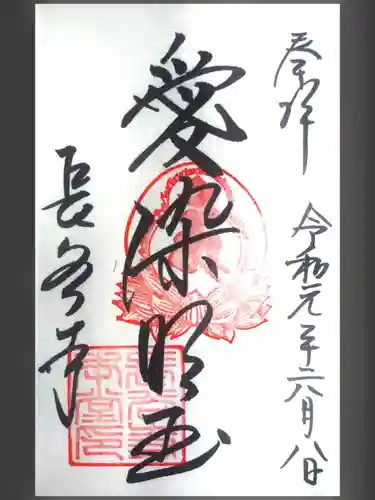 奉拝
令和元年六月八日
愛染明王
長谷寺